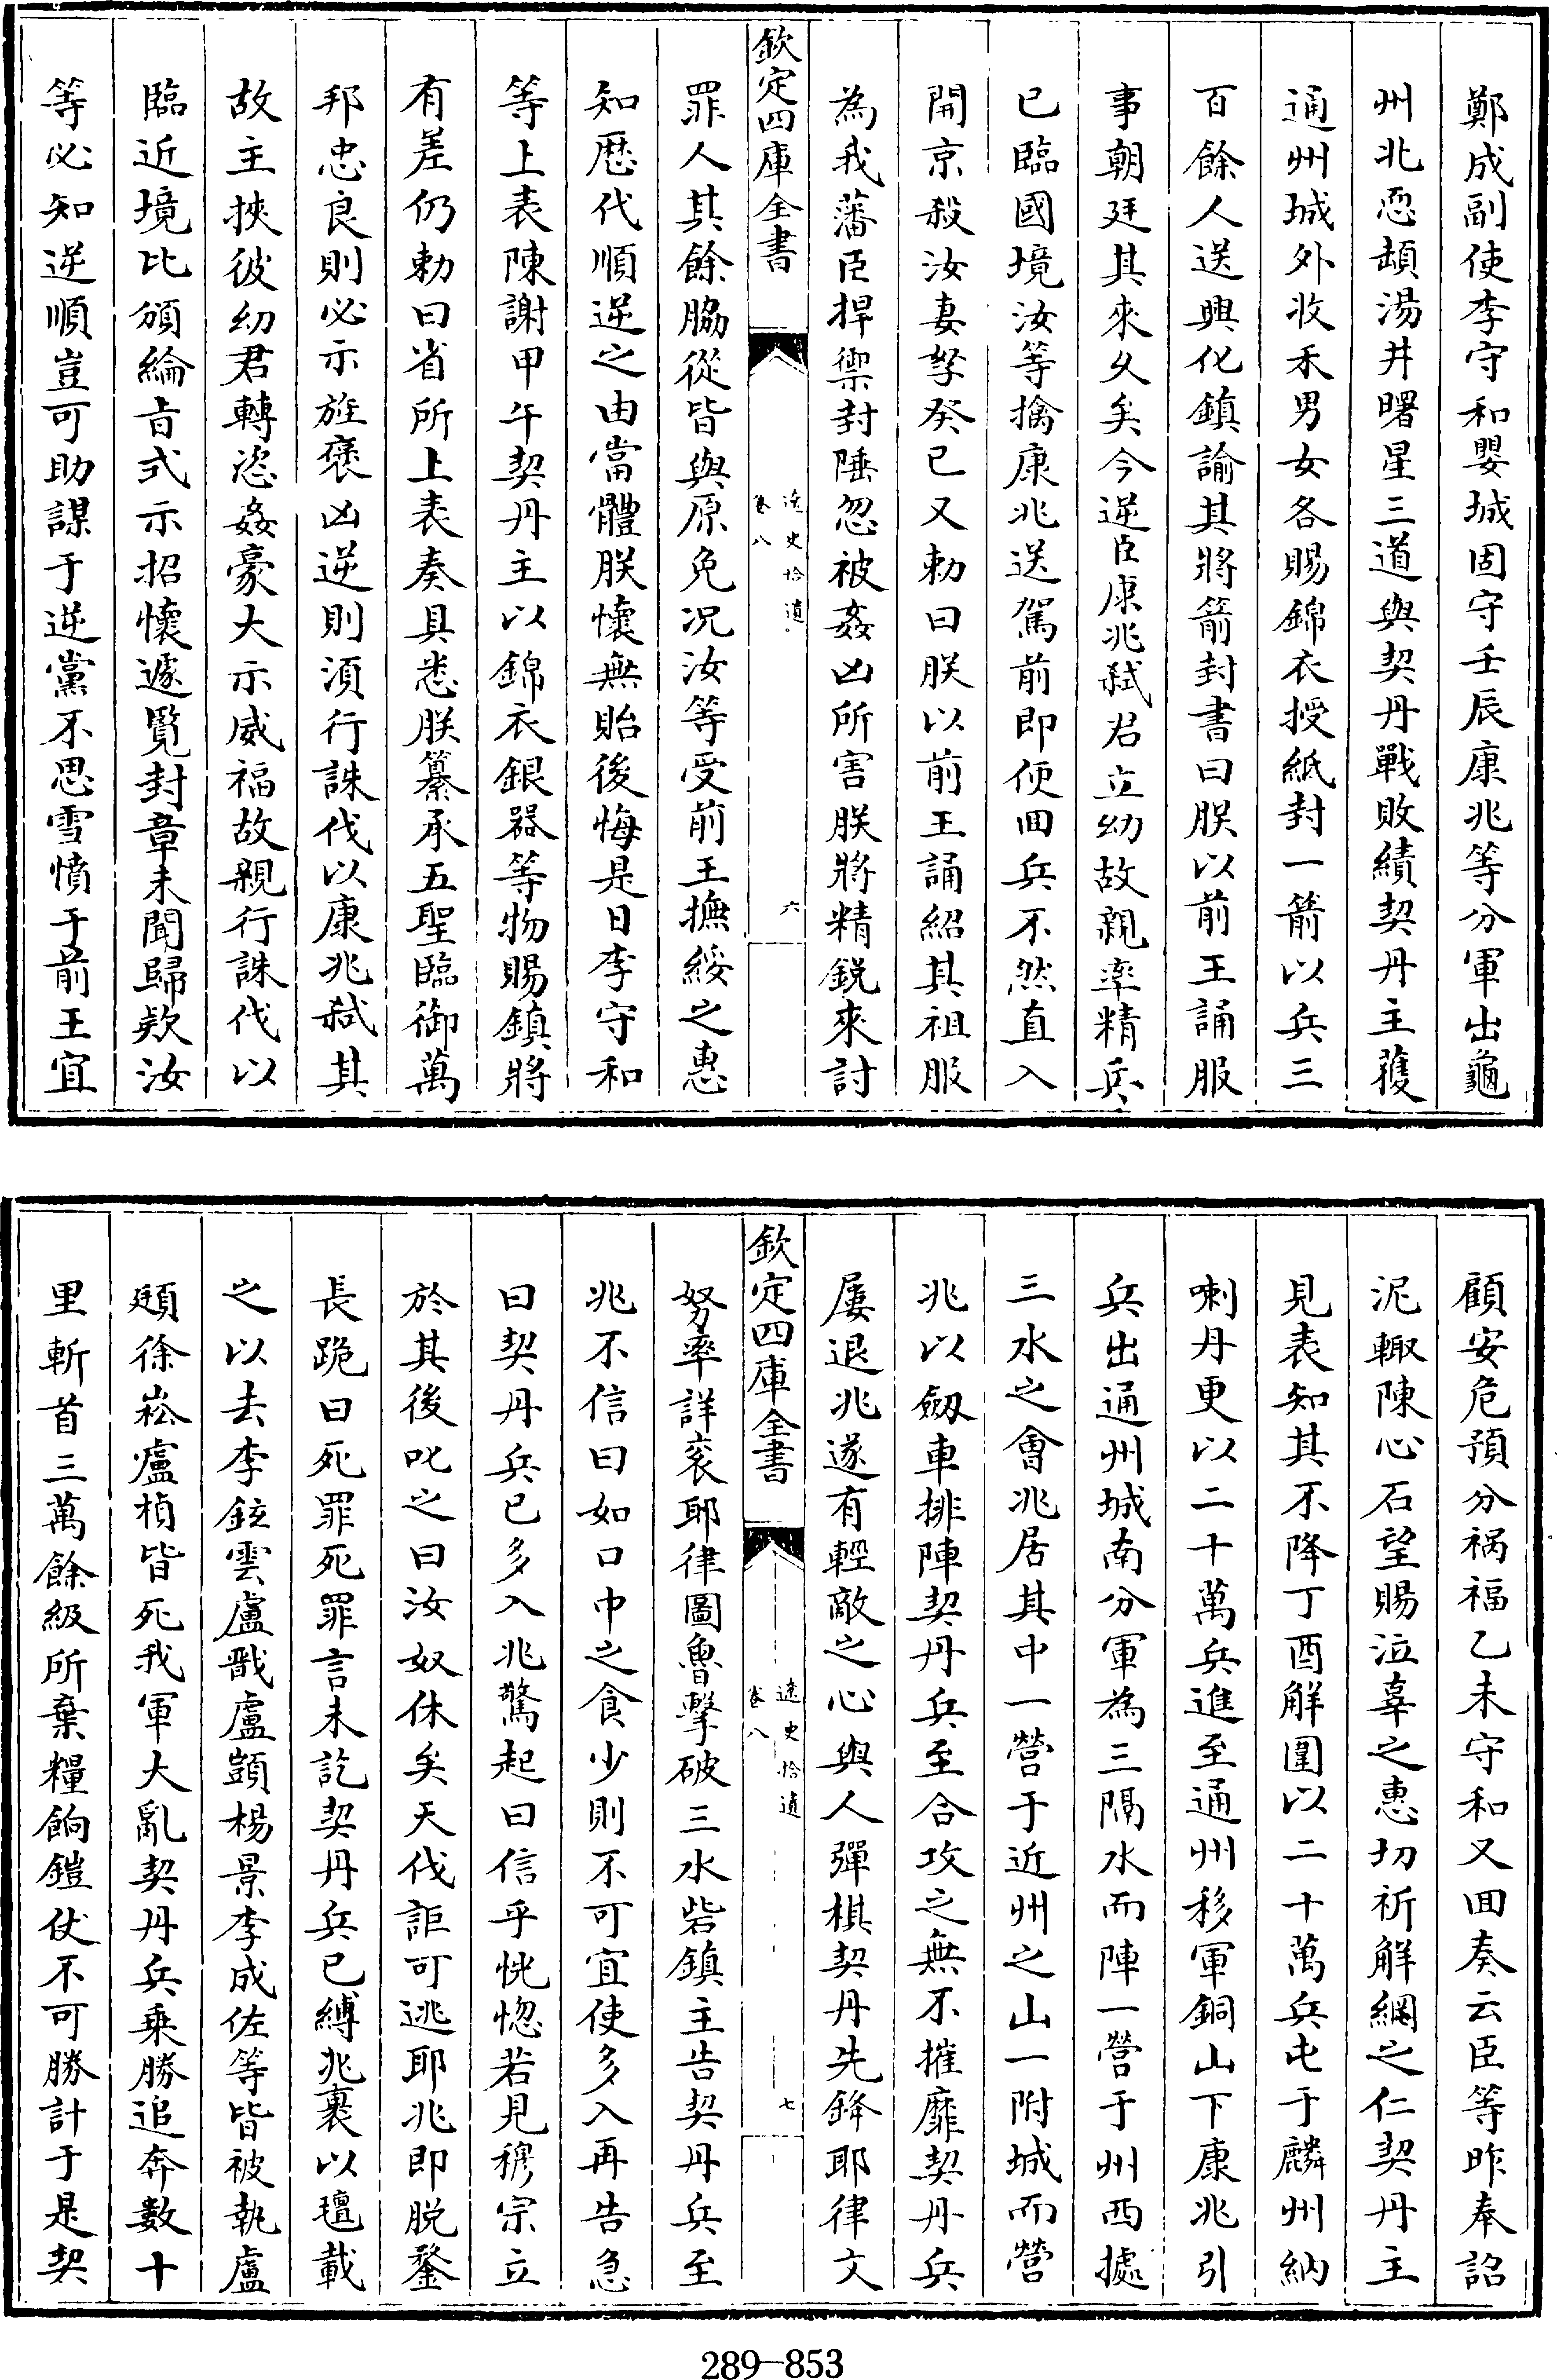 鄭成副使李守和嬰城固守壬辰康兆等分軍出龜
州北恧頓湯井曙星三道與契丹戰敗績契丹主獲
通州城外收禾男女各賜錦衣授紙封一箭以兵三
百餘人送興化鎮諭其將箭封書曰朕以前王誦服
事朝廷其來久矣今逆臣康兆弑君立幼故親率精兵
已臨國境汝等擒康兆送駕前即便囬兵不然直入
開京殺汝妻孥癸已又勅曰朕以前王誦紹其祖服
為我藩臣捍禦封陲忽被姦凶所害朕將精鋭來討
欽定四庫全書
遼史拾遺
卷八
六
罪人其餘脇從皆與原免况汝等受前王撫綏之惠
知歴代順逆之由當體朕懐無貽後悔是日李守和
等上表陳謝甲午契丹主以錦衣銀器等物賜鎮將
有差仍勅曰省所上表奏具悉朕纂承五聖臨御萬
邦忠良則必示旌褒凶逆則須行誅伐以康兆弑其
故主挾彼幼君轉恣姦豪大示威福故親行誅伐以
臨近境比頒綸㫖式示招懐遽覽封章未聞歸欵汝
等必知逆順豈可助謀于逆黨不思雪憤于前王宜
顧安危預分禍福乙未守和又囬奏云臣等昨奉詔
泥輙陳心石望賜泣辜之惠切祈解網之仁契丹主
見表知其不降丁酉解圍以二十萬兵屯于麟州納
喇丹更以二十萬兵進至通州移軍銅山下康兆引
兵出通州城南分軍為三隔水而陣一營于州西㨿
三水之會兆居其中一營于近州之山一附城而營
兆以劒車排陣契丹兵至合攻之無不摧靡契丹兵
屢退兆遂有輕敵之心與人彈棋契丹先鋒耶律文
欽定四庫全書
遼史拾遺
卷八
七
努率詳衮耶律圖魯擊破三水砦鎮主告契丹兵至
兆不信曰如口中之食少則不可宜使多入再告急
曰契丹兵已多入兆驚起曰信乎恍惚若見穆宗立
於其後叱之曰汝奴休矣天伐詎可逃耶兆即脱鍪
長跪曰死罪死罪言未訖契丹兵已縛兆裹以氊載
之以去李鉉雲盧戬盧顗楊景李成佐等皆被執盧
頲徐崧盧楨皆死我軍大亂契丹兵乘勝追奔數十
里斬首三萬餘級所棄糧餉鎧仗不可勝計于是契
289-853